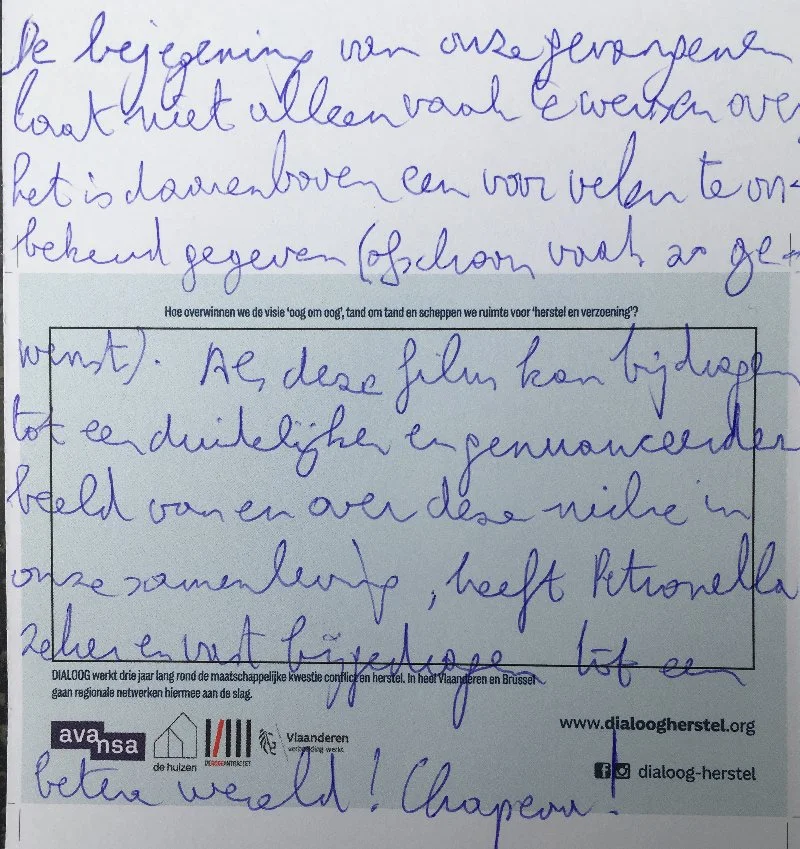 De bejegening van onze gevangenen
laat niet alleen vaak te wensen over
het is daarenboven een voor velen te on-
bekend gegeven (ofschoon vaak zo ge-
Hoe overwinnen we de visie 'oog om oog', tand om tand en scheppen we ruimte voor 'herstel en verzoening'?
wenst). Als deze film kan bijdragen
tot een duidelijker en genuanceerder
beeld van en over deze niche in
onze samenleving, heeft Petronella
zeker en vast bijgedragen tot een
DIALOOG werkt drie jaar lang rond de maatschappelijke kwestie conflict en herstel. In heel Vlaanderen en Brussel
gaan regionale netwerken hiermee aan de slag.
www.dialoogherstel.org
avansa
de huizen
Vlaanderen
verbeelding werkt
dialoog-herstel
betere wereld! Chapeau!